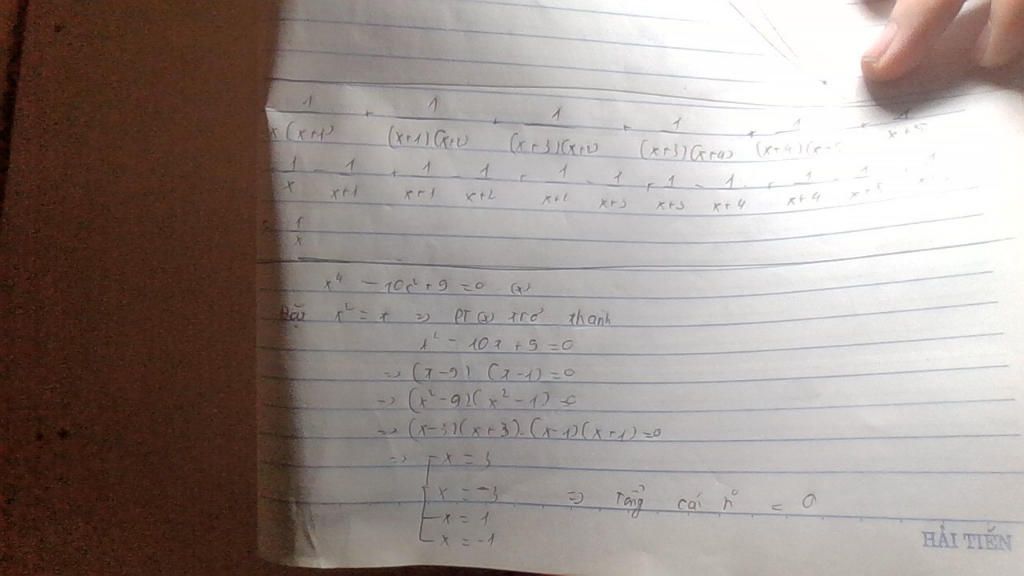 1/x(x+1) + 1/(x+1)(x+2) + 1/(x+3)(x+2) + 1/(x+3)(x+4) + 1/(x+4)(x+5) + 1/x+5
1/x - 1/x+1 + 1/x+1 - 1/x+2 + 1/x+2 - 1/x+3 + 1/x+3 - 1/x+4 + 1/x+4 - 1/x+5
1/x
x⁴ - 10x² + 9 = 0 (x)
Đặt x² = t => PT (x) trở thành
t² - 10t + 9 = 0
=> (t-9) (t-1) = 0
=> (x²-9)(x²-1) = 0
=> (x-3)(x+3).(x-1)(x+1) = 0
=> x = 3
x = -3 => Tổng các n° = 0
x = 1
x = -1
HẢI TIẾN